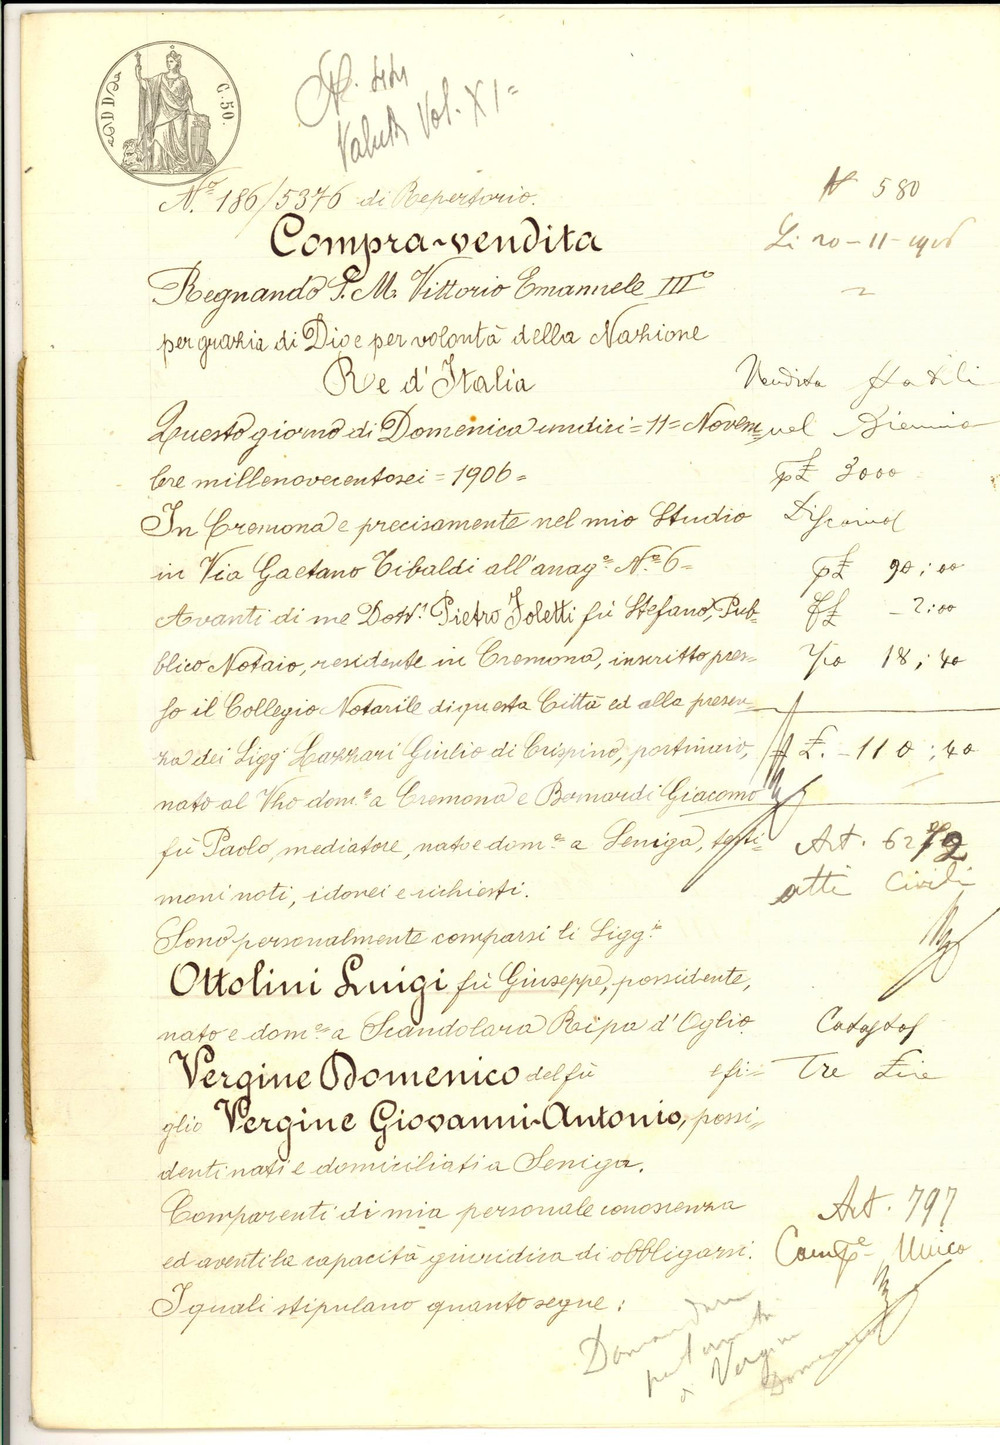 C. 50.
Valuta Vol. XI=
N.º 186/5376 di Repertorio.
N 580
Compra-vendita
Li 20-11-1906
Regnando S. M. Vittorio Emanuele IIIº
per grazia di Dio e per volontà della Nazione
Re d'Italia
Vendita
Questo giorno di Domenica undici = 11 = Novem=
nel Biennio
bre millenovecentosei = 1906 =
p £ 3000
In Cremona e precisamente nel mio Studio
in Via Gaetano Tibaldi all'anagº Nº 6=
p£ 90:00
Avanti di me Dott.r Pietro Foletti fù Stefano, Pub-
- 2:00
blico Notaio, residente in Cremona, inscritto pres-
7/10 18;40
so il Collegio Notarile di questa Città ed alla presen-
za dei Sigg.ri Lazzari Giulio di Crispino, portinaio,
£. - 110;40
nato al Vho dom.º a Cremona e Bernardi Giacomo
fù Paolo, mediatore, nato e dom.º a Seniga, testi-
Art. 6272
moni noti, idonei e richiesti.
atti Civili
Sono personalmente comparsi li Sigg.ri
Ottolini Luigi fù Giuseppe, possidente,
nato e dom.º a Scandolara Ripa d'Oglio
Catasto
Vergine Domenico del fù e fi=
Tre Lire
glio Vergine Giovanni-Antonio, possi=
denti nati e domiciliati a Seniga.
Comparenti di mia personale conoscenza
Art. 797
ed aventi la capacità giuridica di obbligarsi.
Camp.e Unico
I quali stipulano quanto segue:
a Vergine
Domenico